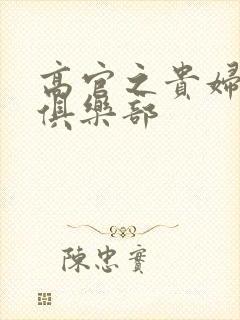 高官之貴婦
俱樂部
陳忠實